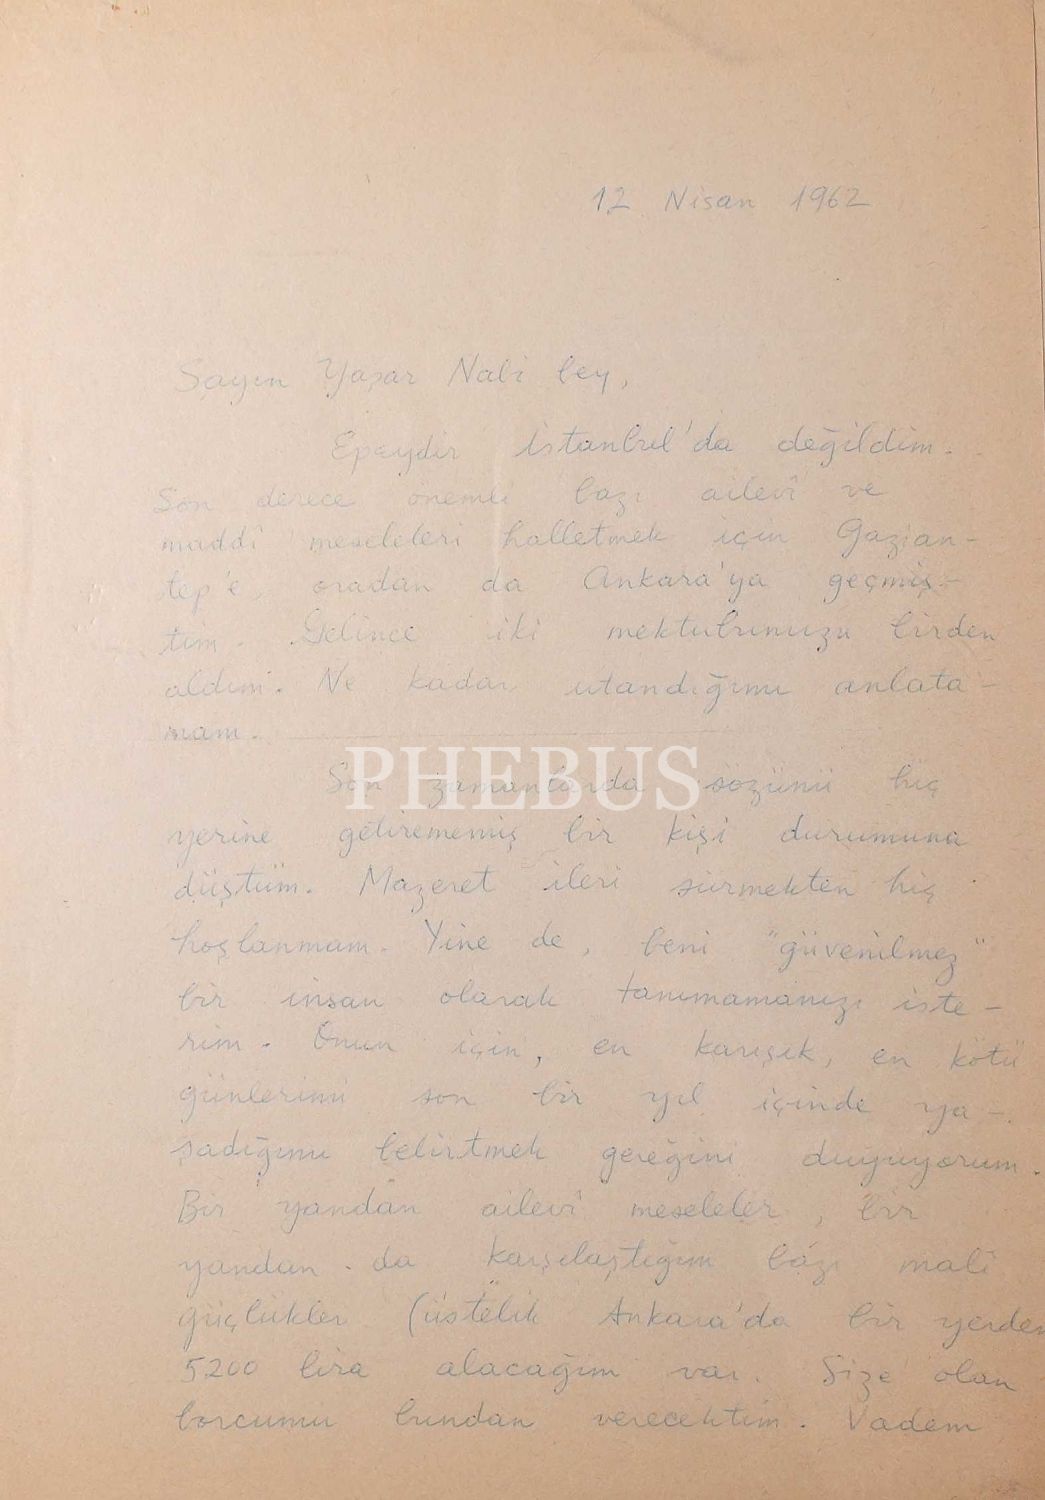 12 Nisan 1962
Sayın Yaşar Nabi bey,
Epeydir İstanbul'da değildim.
Son derece önemli bazı ailevî ve
maddî meseleleri halletmek için Gazian-
tep'e, oradan da Ankara'ya geçmiş-
tim. Gelince iki mektubunuzu birden
aldım. Ne kadar utandığımı anlata-
mam.
PHEBUS
Son zamanlarda sözünü hiç
yerine getirememiş bir kişi durumuna
düştüm. Mazeret ileri sürmekten hiç
hoşlanmam. Yine de, beni "güvenilmez"
bir insan olarak tanımamanızı iste-
rim. Onun için, en karışık, en kötü
günlerimi son bir yıl içinde ya-
şadığımı belirtmek gereğini duyuyorum.
Bir yandan ailevî meseleler, bir
yandan da karşılaştığım bâzı malî
güçlükler (üstelik Ankara'da bir yerden
5200 lira alacağım var. Size olan
borcumu bundan verecektim. Vadem